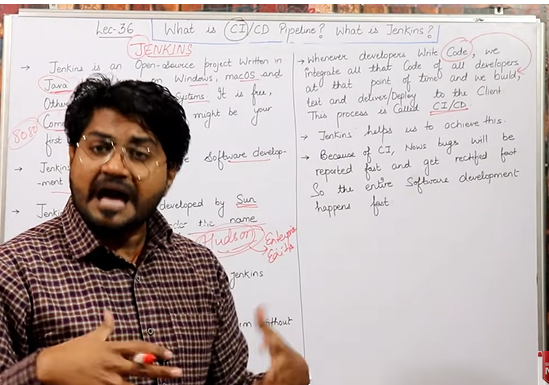 Lec-36 What is CI/CD Pipeline? What is Jenkins?
JENKINS
→ Jenkins is an Open-source project written in
Java Windows, macOS and
Other Systems. It is free,
Com might be your
first
8080
→ Jenkins software develop-
-ment
→ Jenki developed by Sun
under the name
Hudson
→ Enterprise
Jenkins
without
→ Whenever developers Write Code, we
integrate all that Code of all developers
at that point of time and we build,
test and deliver/Deploy to the Client
This process is Called CI/CD
→ Jenkins helps us to achieve this.
→ Because of CI, Now bugs will be
reported fast and get rectified fast
So the entire Software development
happens fast